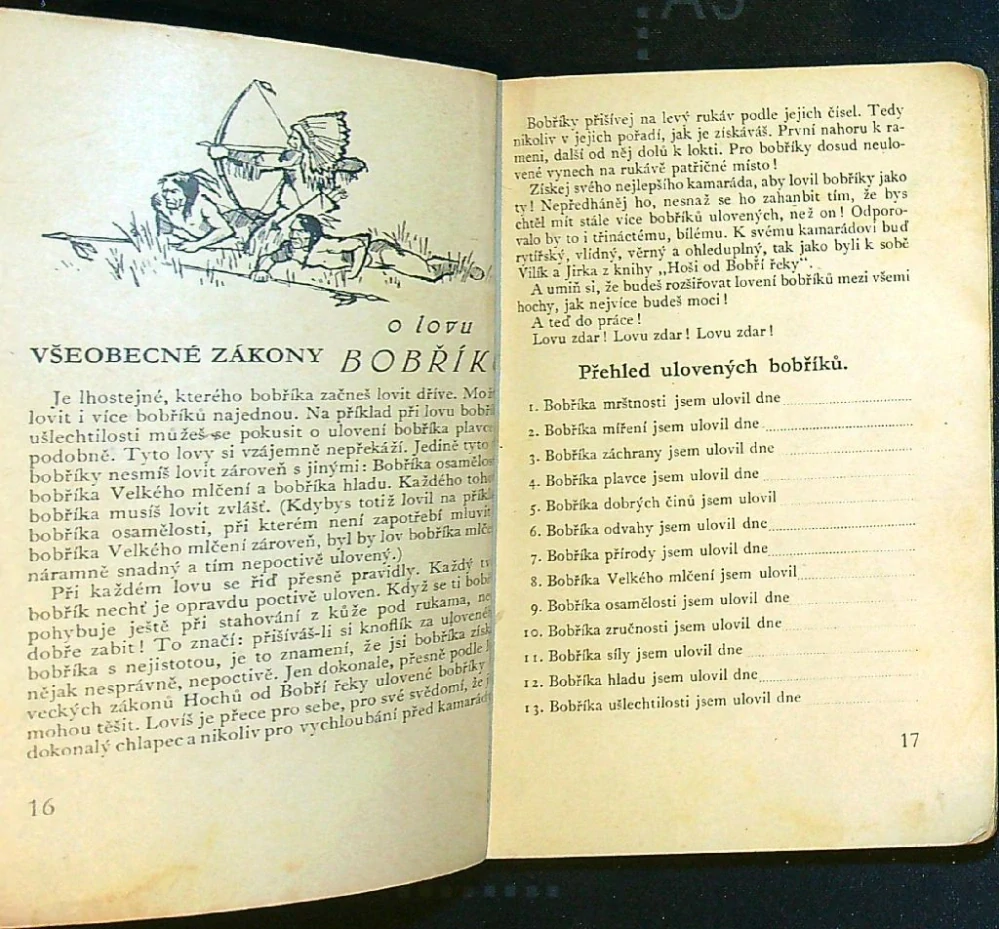 o lovu
VŠEOBECNÉ ZÁKONY BOBŘÍK
Je lhostejné, kterého bobříka začneš lovit dříve.
lovit i více bobříků najednou. Na příklad při lovu
ušlechtilosti můžeš se pokusit o ulovení bobříka
podobně. Tyto lovy si vzájemně nepřekáží. Jedině tyto
bobříky nesmíš lovit zároveň s jinými: Bobříka
bobříka Velkého mlčení a bobříka hladu. Každého
bobříka musíš lovit zvlášť. (Kdybys totiž lovil na
bobříka osamělosti, při kterém není zapotřebí mluvit
bobříka Velkého mlčení zároveň, byl by lov bobříka
náramně snadný a tím nepoctivě ulovený.)
Při každém lovu se řiď přesně pravidly. Každý
bobřík nechť je opravdu poctivě uloven. Když se ti
pohybuje ještě při stahování z kůže pod rukama,
dobře zabit! To značí: přišíváš-li si knoflík za
bobříka s nejistotou, je to znamení, že jsi bobříka
nějak nesprávně, nepoctivě. Jen dokonale, přesně podle
veckých zákonů Hochů od Bobří řeky ulovené bobříky
mohou těšit. Lovíš je přece pro sebe, pro své svědomí, že
dokonalý chlapec a nikoliv pro vychloubání před
16
Bobříky přišívej na levý rukáv podle jejich čísel. Tedy
nikoliv v jejich pořadí, jak je získáváš. První nahoru k ra-
meni, další od něj dolů k lokti. Pro bobříky dosud neulo-
vené vynech na rukávě patřičné místo!
Získej svého nejlepšího kamaráda, aby lovil bobříky jako
ty! Nepředháněj ho, nesnaž se ho zahanbit tím, že bys
chtěl mít stále více bobříků ulovených, než on! Odporo-
valo by to i třináctému, bílému. K svému kamarádovi buď
rytířský, vlídný, věrný a ohleduplný, tak jako byli k sobě
Vilík a Jirka z knihy „Hoši od Bobří řeky".
A umiň si, že budeš rozšiřovat lovení bobříků mezi všemi
hochy, jak nejvíce budeš moci!
A teď do práce!
Lovu zdar! Lovu zdar! Lovu zdar!
Přehled ulovených bobříků.
1. Bobříka mrštnosti jsem ulovil dne
2. Bobříka míření jsem ulovil dne
3. Bobříka záchrany jsem ulovil dne
4. Bobříka plavce jsem ulovil dne
5. Bobříka dobrých činů jsem ulovil
6. Bobříka odvahy jsem ulovil dne
7. Bobříka přírody jsem ulovil dne
8. Bobříka Velkého mlčení jsem ulovil
9. Bobříka osamělosti jsem ulovil dne
10. Bobříka zručnosti jsem ulovil dne
11. Bobříka síly jsem ulovil dne
12. Bobříka hladu jsem ulovil dne
13. Bobříka ušlechtilosti jsem ulovil dne
17